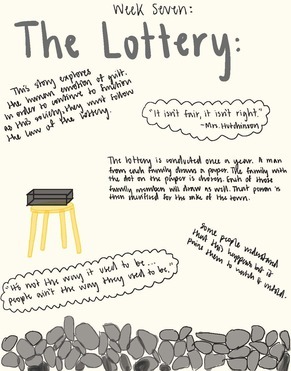 Week Seven:
The Lottery:
This story explores
the human emotion of guilt.
In order to continue to function
as this society, they must follow
the law of the lottery.
"It isn't fair, it isn't right."
-Mrs. Hutchinson
The lottery is conducted once a year. A man
from each family draws a paper. The family with
the dot on the paper is chosen. Each of those
family members will draw as well. That person is
then sacrificed for the sake of the town.
"It's not the way it used to be...
people ain't the way they used to be."
Some people understand
that this happens but it
them to watch &